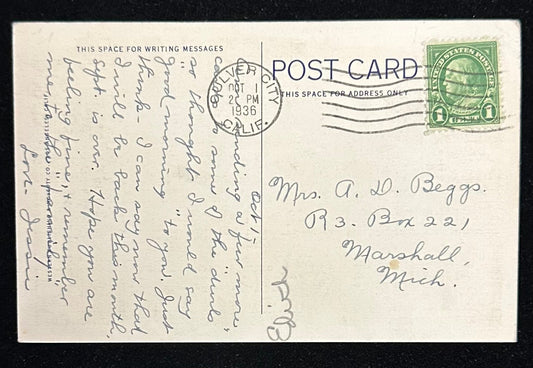 THIS SPACE FOR WRITING MESSAGES
Oct, 1-
Sending a few more
cards to some of the
so thought I would say
"good morning" to you. Just
think - I can say now that
I will be back this month,
Sept. is over. Hope you are
feeling fine, & remember
me to the
Love - Jessie
POST CARD
THIS SPACE FOR ADDRESS ONLY
CULVER CITY
OCT 1
2 PM
1936
CALIF.
UNITED STATES POSTAGE
1 1
Mrs. A. D. Beggs.
R3. Box 221
Marshall,
Mich.